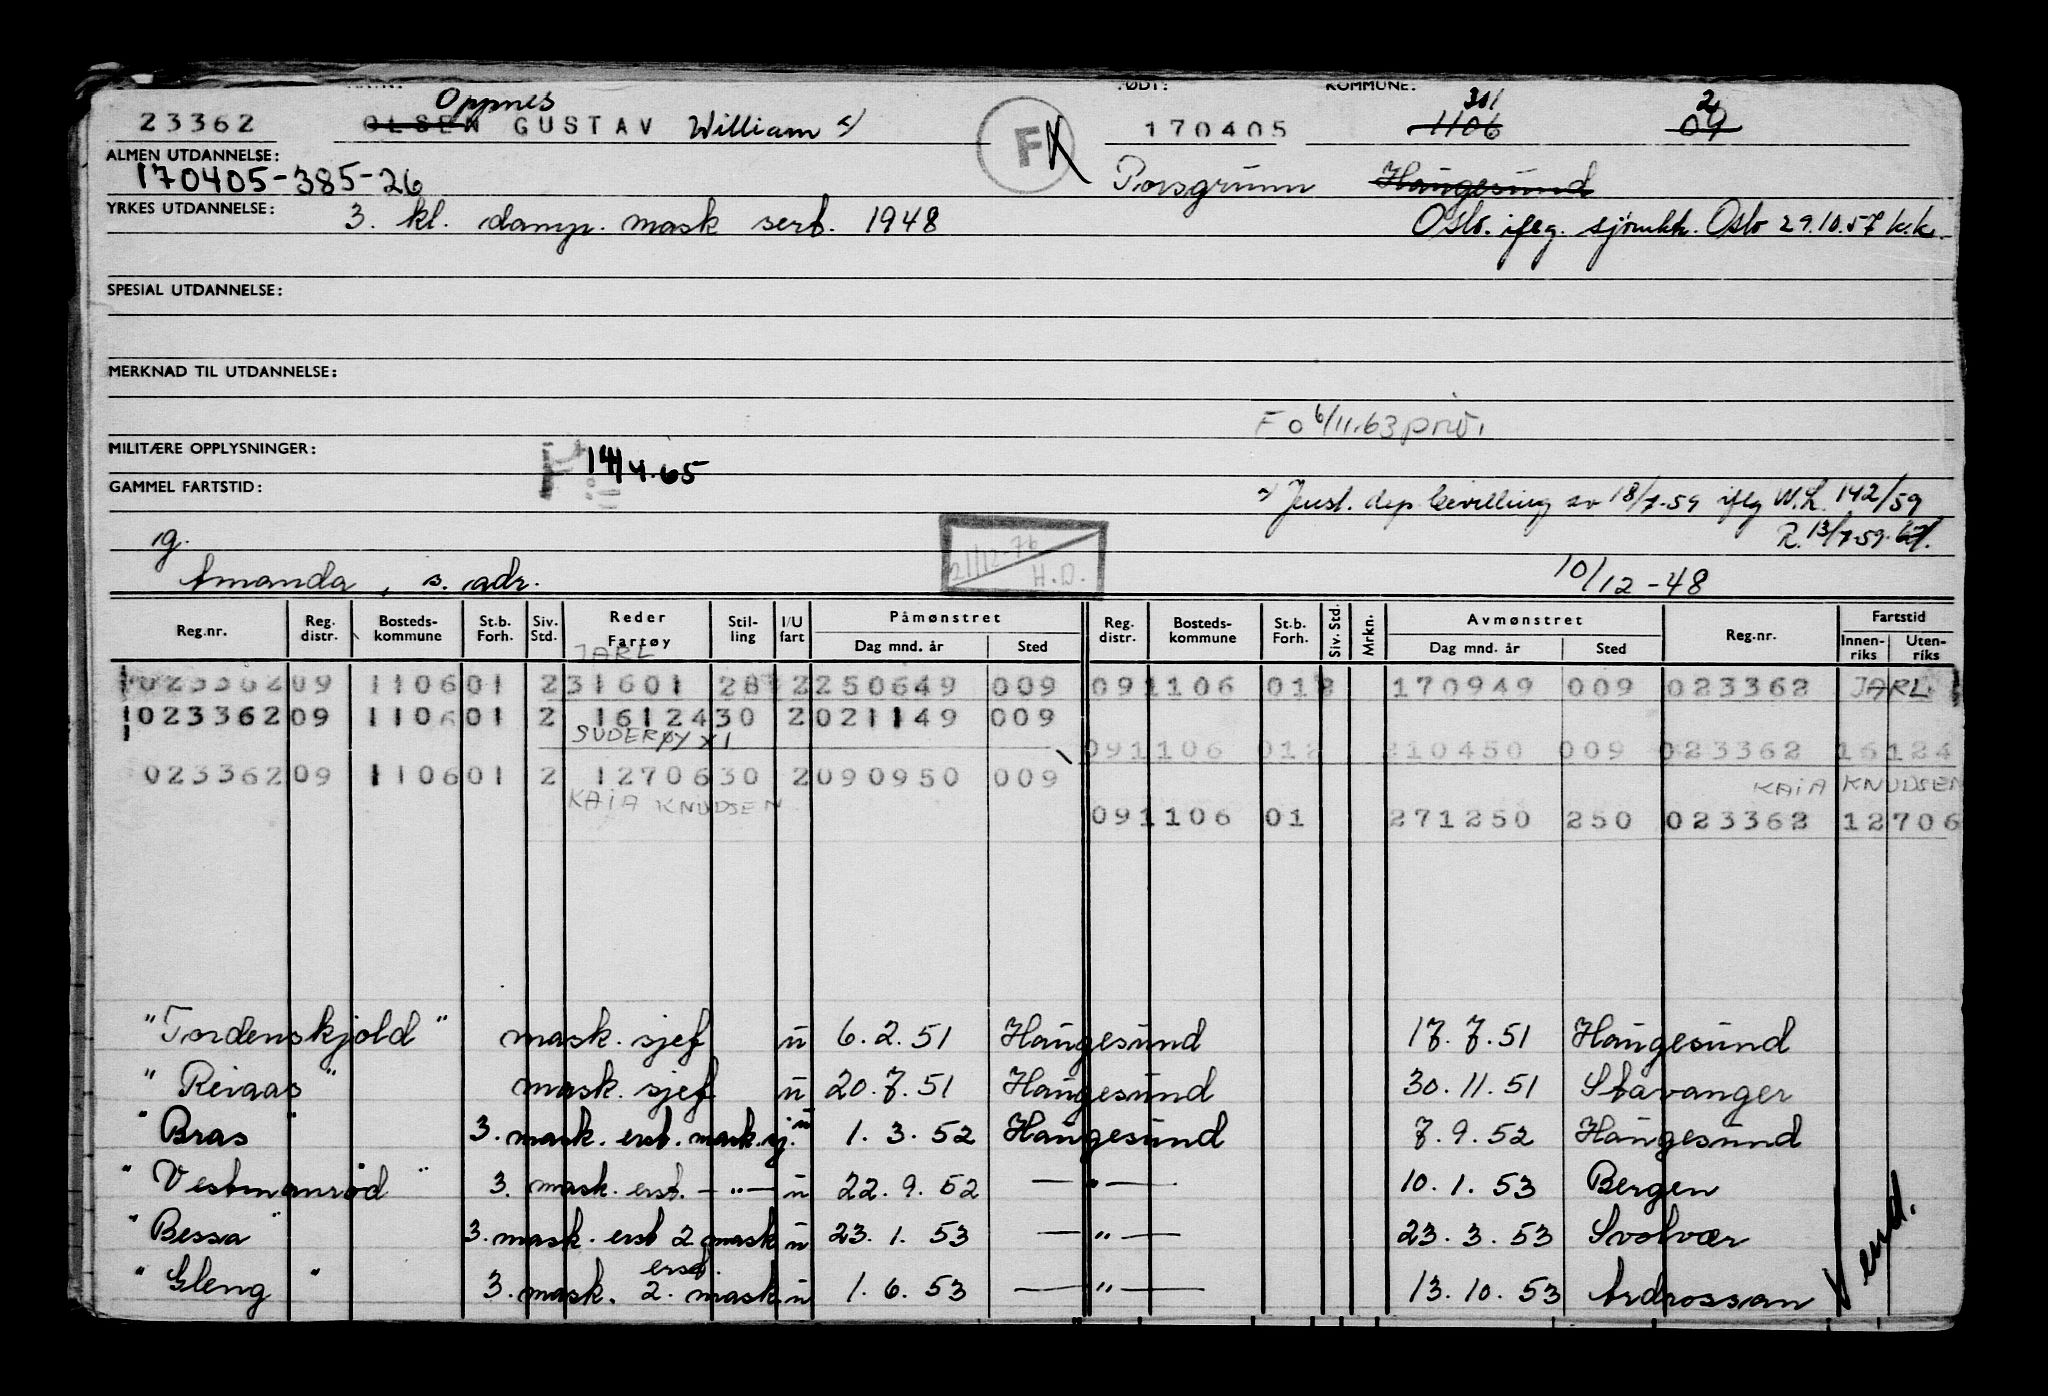 Oppnes
FØDT: KOMMUNE: 301 2
23362 OLSEN GUSTAV William x) FK 170405 1106 09
ALMEN UTDANNELSE:
170405-385-26 Porsgrunn Haugesund
YRKES UTDANNELSE: 3. kl. damp. mask sert. 1948 Oslo. ifeg. sjømkk. Oslo 29.10.57 k.k.
SPESIAL UTDANNELSE:
MERKNAD TIL UTDANNELSE:
F O 6/11.63
MILITÆRE OPPLYSNINGER:
14/4.65
GAMMEL FARTSTID: x) Just. dep. bevilling av 18/7-59 iflg W.L. 142/59
R. 13/7-59.
g. 21/12-76
H.D.
Amanda, s. adr. 10/12-48
Reg.nr. Reg. distr. Bosteds-kommune St.b. Forh. Siv. Std. Reder Fartøy Stil-ling I/U fart Påmønstret Dag mnd. år Sted Reg. distr. Bosteds-kommune St.b. Forh. Siv. Std. Mrkn. Avmønstret Dag mnd. år Sted Reg.nr. Fartstid Innen-riks Uten-riks
JARL
02336209 110601 231601 28 2250649 009 091106 012 170949 009 023362 JARL
02336209 110601 2 1612430 2021149 009
SUDERØY XI
091106 012 210450 009 023362 16124
02336209 110601 2 1270630 2090950 009 KAIA KNUDSEN
KAIA KNUDSEN
091106 01 271250 250 023362 12706
"Tordenskjold" mask. sjef u 6.2.51 Haugesund 17.7.51 Haugesund
"Reiaas" mask. sjef u 20.7.51 Haugesund 30.11.51 Stavanger
"Bras" 3. mask. erst. mask. sj. u 1.3.52 Haugesund 7.9.52 Haugesund
"Vestmanrød" 3. mask. erst. —"— u 22.9.52 —"— 10.1.53 Bergen
"Bessa" 3. mask. erst 2 mask u 23.1.53 —"— 23.3.53 Svolvær
erst.
"Gleng" 3. mask. 2. mask u 1.6.53 —"— 13.10.53 Ardrossan
Vend.